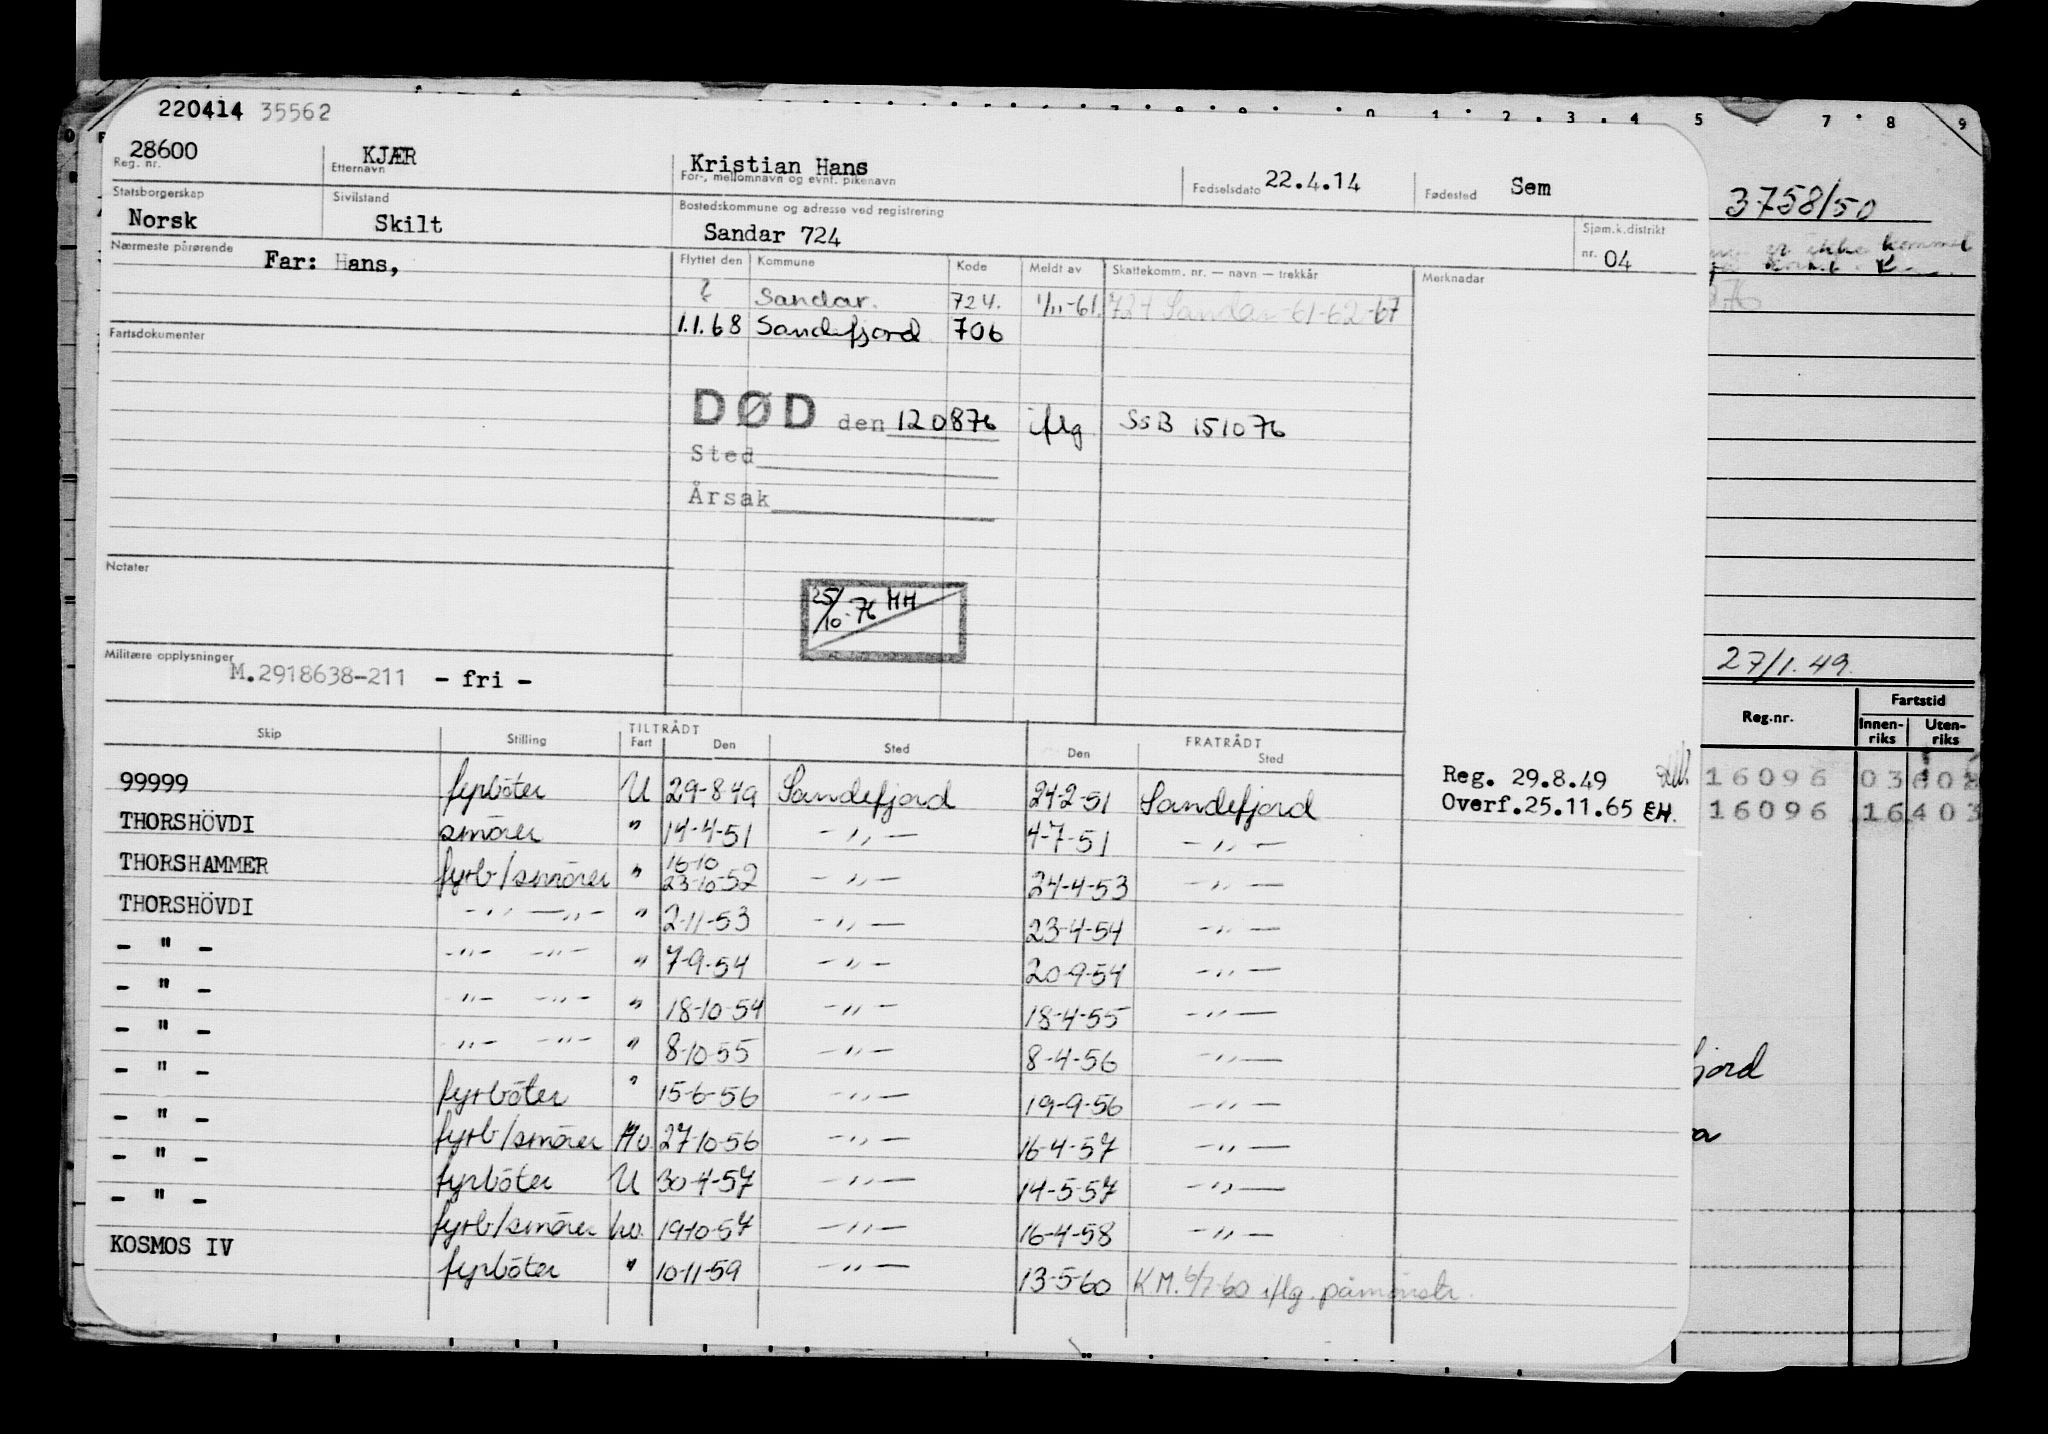 220414 35562
28600 KJÆR Kristian Hans 22.4.14 Sem
Reg. nr. Etternavn For-, mellomnavn og evnt. pikenavn Fødselsdato Fødested
Statsborgerskap Sivilstand Bostedskommune og adresse ved registrering Sjøm.k.distrikt
Norsk Skilt Sandar 724 nr. 04
Nærmeste pårørende Far: Hans,
Flyttet den Kommune Kode Meldt av Skattekomm. nr. — navn — trekkår Merknadar
? Sandar. 724. 1/11-61 724 Sandar-61-62-67
1.1.68 Sandefjord 706
Fartsdokumenter
DØD den 120876 iflg SSB 151076
Sted
Årsak
Notater
25/10-76 HH
Militære opplysninger
M.2918638-211 - fri -
Skip Stilling TILTRÅDT Fart Den Sted FRATRÅDT Den Sted
99999 fyrböter U 29-8-49 Sandefjord 24-2-51 Sandefjord Reg. 29.8.49
Overf.25.11.65 EH.
THORSHÖVDI smörer " 14-4-51 - " - 4-7-51 - " -
THORSHAMMER fyrb/smörer " 16-10
23-10-52 - " - 24-4-53 - " -
THORSHÖVDI - " - - " - " 2-11-53 - " - 23-4-54 - " -
- " - - " - - " - " 7-9-54 - " - 20-9-54 - " -
- " - - " - - " - " 18-10-54 - " - 18-4-55 - " -
- " - - " - - " - " 8-10-55 - " - 8-4-56 - " -
- " - fyrböter " 15-6-56 - " - 19-9-56 - " -
- " - fyrb/smörer Hv 27-10-56 - " - 16-4-57 - " -
- " - fyrböter U 30-4-57 - " - 14-5-57 - " -
- " - fyrb/smörer hv. 19-10-57 - " - 16-4-58 - " -
KOSMOS IV fyrböter " 10-11-59 - " - 13-5-60 KM. 6/7-60 iflg. påmönstr.
5 7 8 9
3758/50
27/1.49.
Reg.nr. Fartstid
Innen-riks Uten-riks
16096
16096 16403
fjord